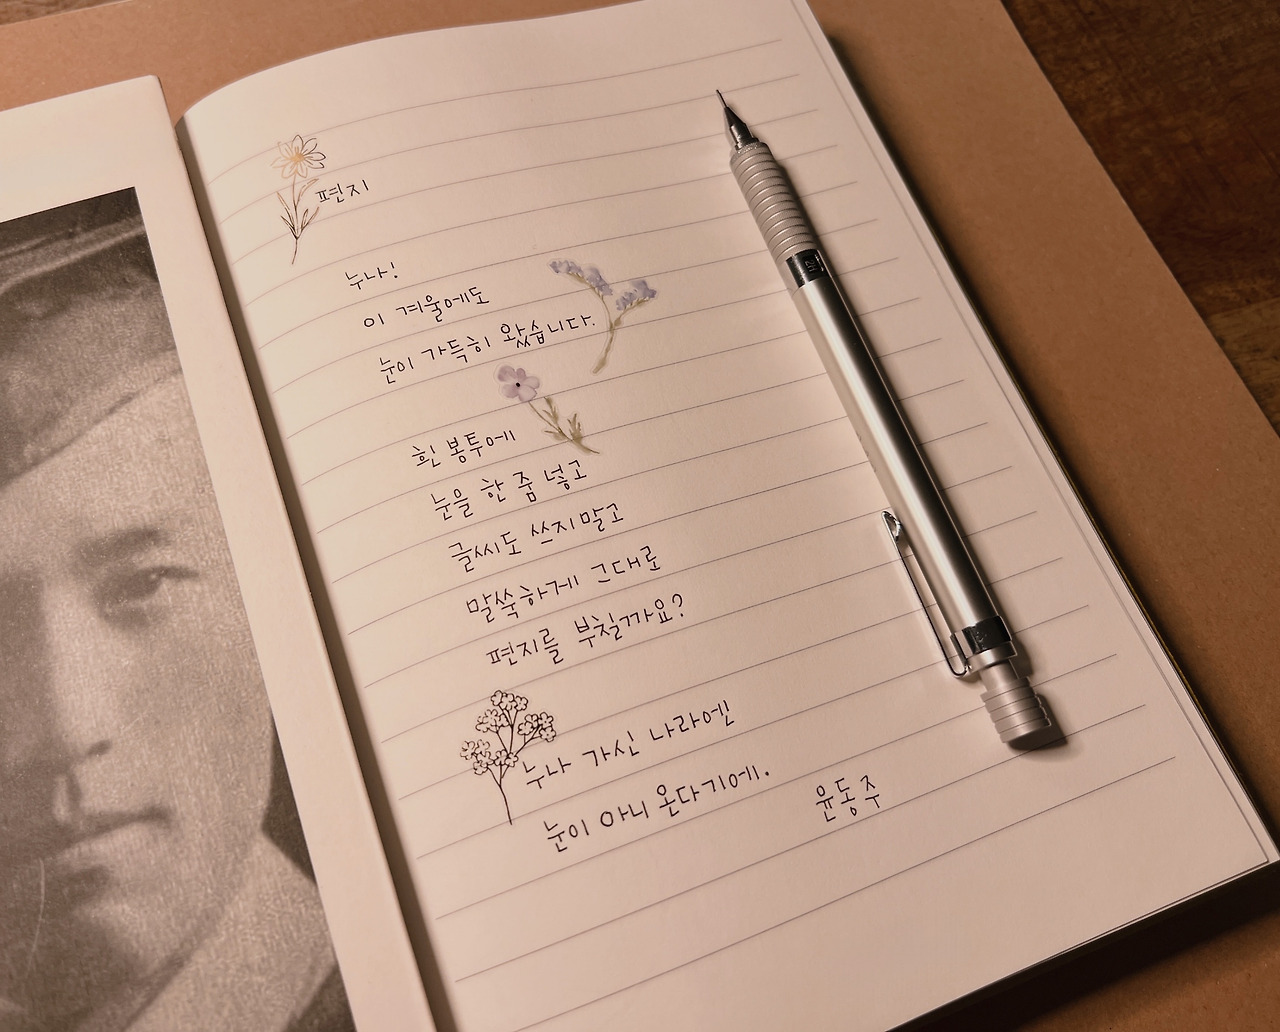 편지
누나!
이 겨울에도
눈이 가득히 왔습니다.
흰 봉투에
눈을 한 줌 넣고
글씨도 쓰지 말고
말쑥하게 그대로
편지를 부칠까요?
누나 가신 나라엔
눈이 아니 온다기에.
윤동주